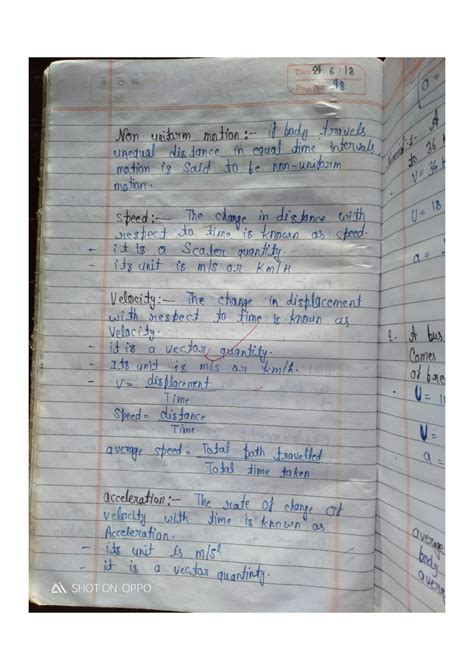 Date 21.6.18
98
Non uniform motion:- if body travels
unequal distance in equal time intervals
motion is said to be non-uniform
motion.
Speed:- The change in distance with
respect to time is known as speed.
- it is a Scaler quantity.
- its unit is m/s or Km/H
Velocity:- The change in displacement
with respect to time is known as
Velocity.
- it is a vector quantity.
- Its unit is m/s or km/h.
- V= displacement
Time
Speed= distance
Time
average speed= Total path travelled
Total time taken
acceleration:- The rate of change of
velocity with time is known as
Acceleration.
- its unit is m/s²
- it is a vector quantinty.
SHOT ON OPPO
a =
A
to 36 k
V= 36 k
U= 18
a =
2. A bus
Comes
of bre
U = 1
V=
a =
average
body
avera